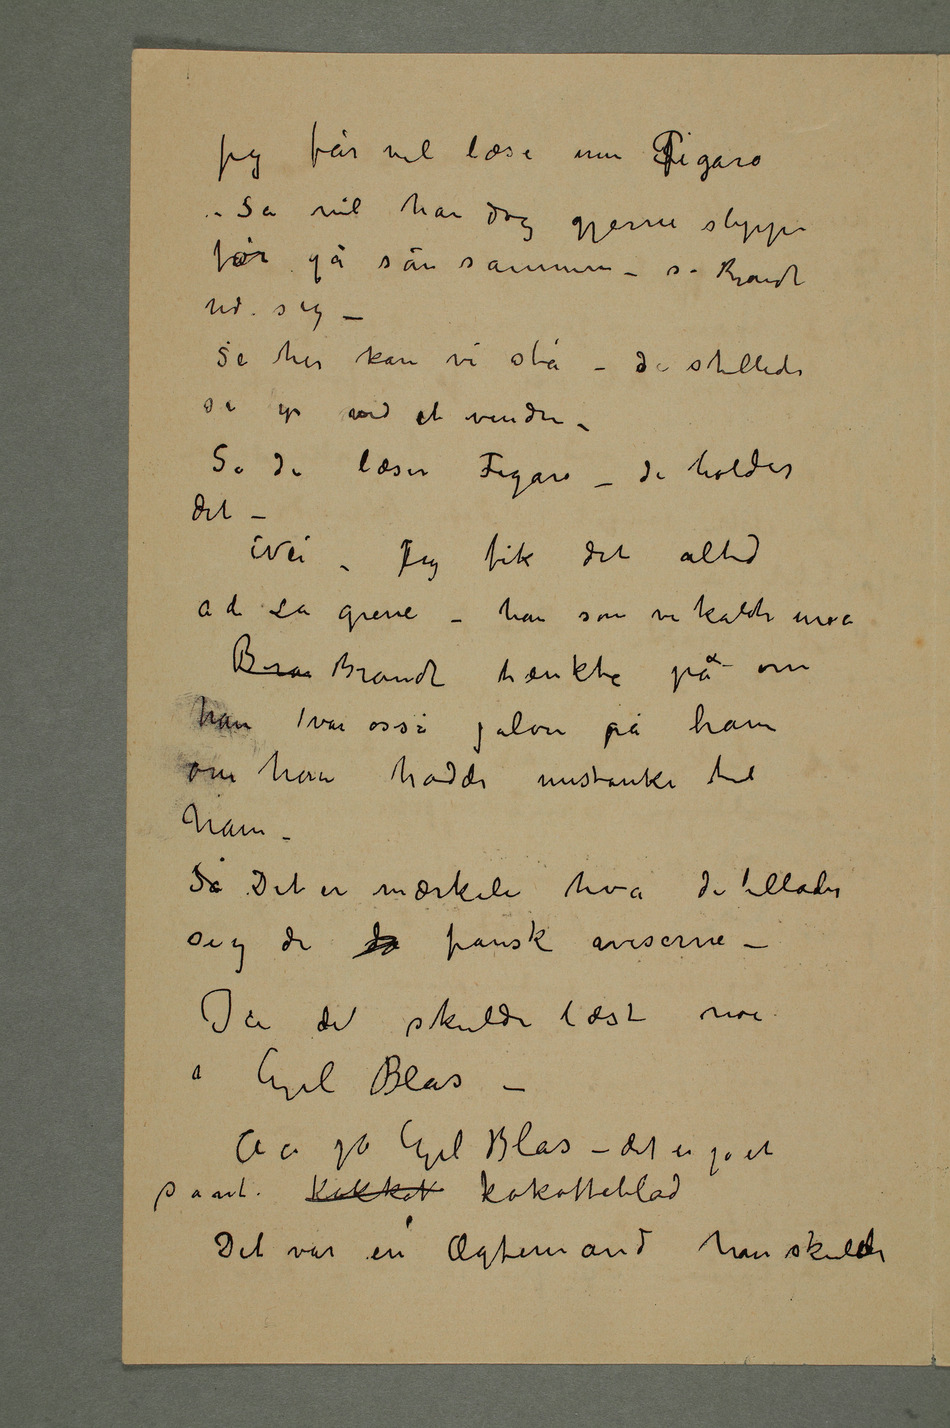 Jeg får vel læse min Figaro
– Så vil han dog gjerne slippe
før gå sån sammen – sa Brandt
ved sig –
Se her kan vi stå – de stillede
si op ved et vindu –
Så De læser Figaro – De holder
det –
Nei – Jeg fik det altid
a de La grene – han som vi kaldte
Brandt tænkte på – om
han var osså jalou på ham
om han hadde mistanke til
ham –
Så Det er mærkeli hva de tillader
sig de fransk aviserne –
Ja det skulde læst noe
i Gjil Blas –
Aa ja Gjil Blas – det er jo et
sant. kokotteblad
Det var en Ægtemand han skulde